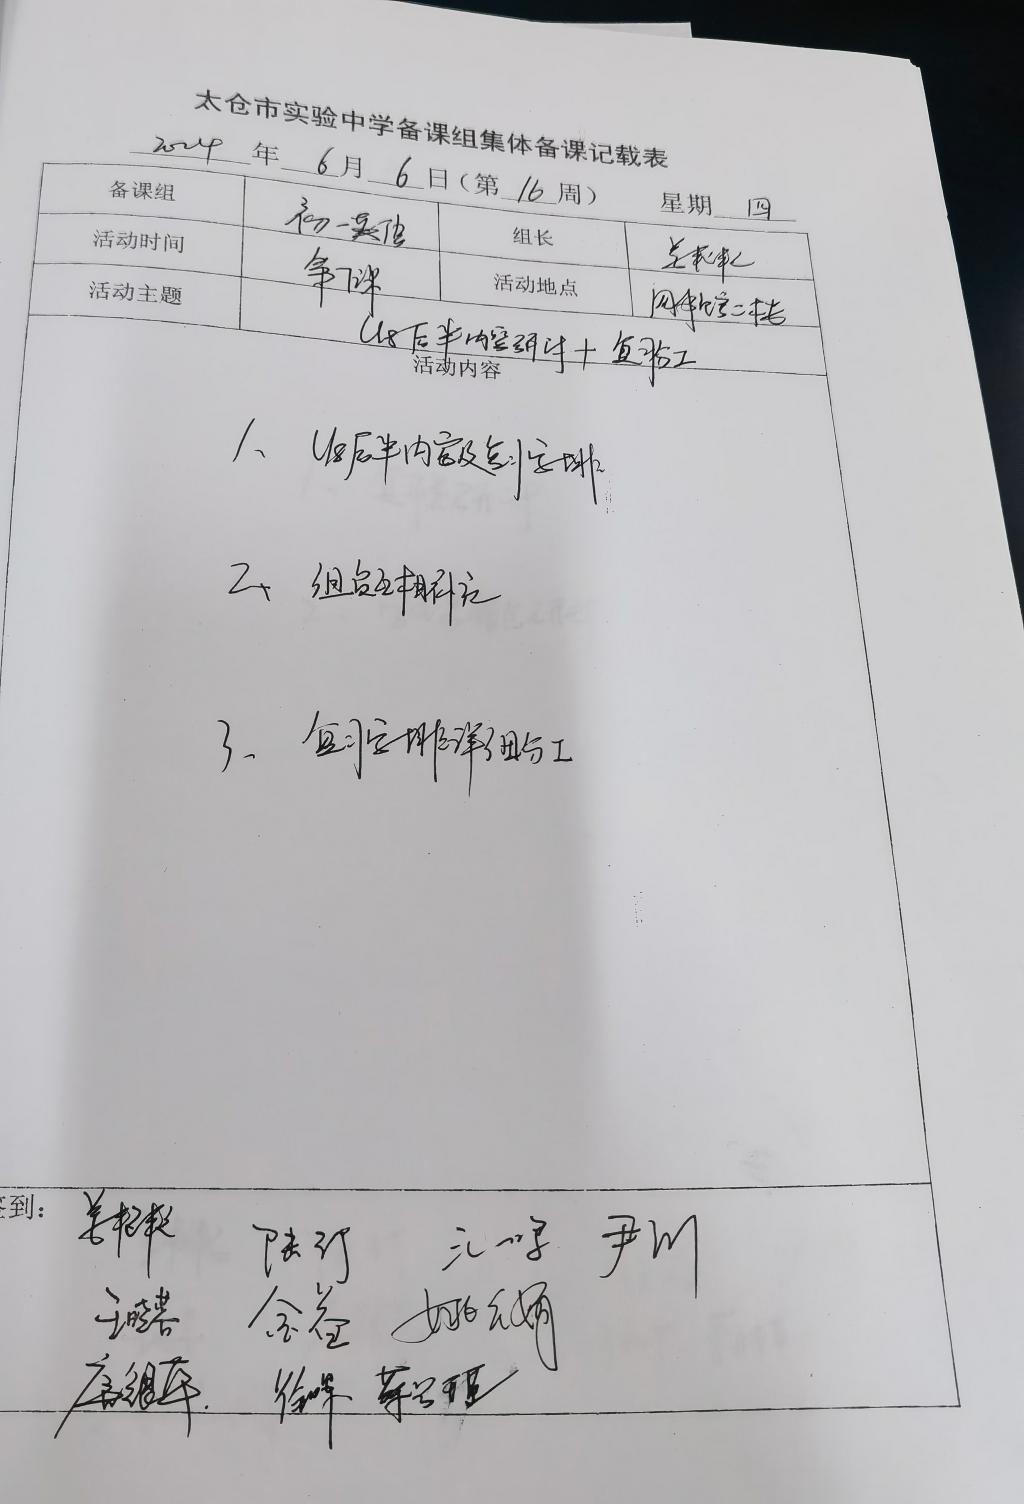 太仓市实验中学备课组集体备课记载表
2024年6月6日（第16周） 星期四
备课组 初一英语 组长
活动时间 第7课 活动地点 图书馆二楼
活动主题 U8后半内容研讨+复习分工
活动内容
1、U8后半内容及复习安排
2、组员互相补充
3、复习安排详细分工
签到：
尹川
金益
徐晔